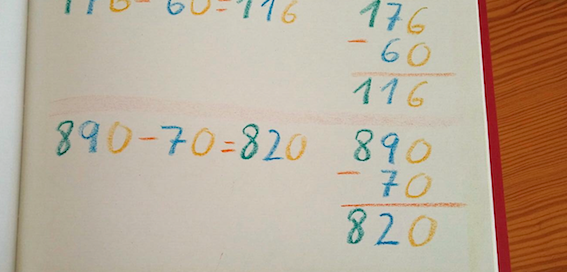 176-60=116
176
-60
116
890-70=820
890
-70
820